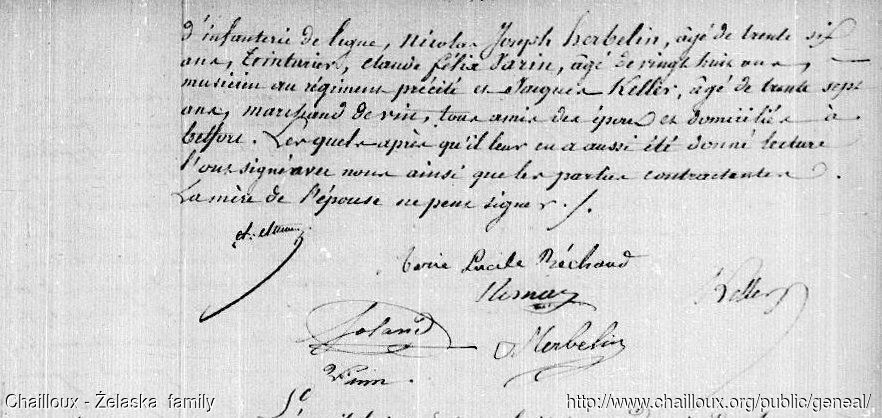 d'infanterie de ligne, Nicolas Joseph herbelin, âgé de trente six
ans, teinturier, claude félix Varin, âgé de vingt huit ans,
musicien au régiment précité et Jacques Keller, âgé de trente sept
ans, marchand de vin, tous amis des époux et domiciliés à
belfort. Lesquels après qu'il leur en a aussi été donné lecture
l'ont signé avec nous ainsi que les parties contractantes.
La mère de l'épouse ne peut signer ./.
Marie Lucile Béchaud
Keller
Herbelin
Chailloux - Żelaska family
http://www.chailloux.org/public/geneal/